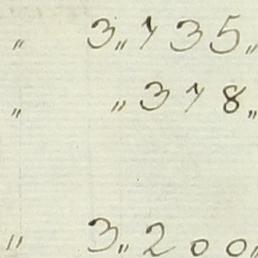 „ 3„735„
„ „378„
„ 3„200„